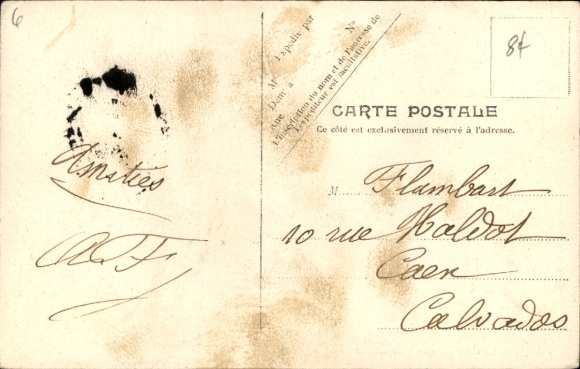 6
M Expédié par
Dem à
rue N°
L'inscription du nom et de l'adresse de
l'expéditeur est facultative.
84
CARTE POSTALE
Ce côté est exclusivement réservé à l'adresse.
Amitiés
A.F.
M Flambart
10 rue Haldot
Caen
Calvados